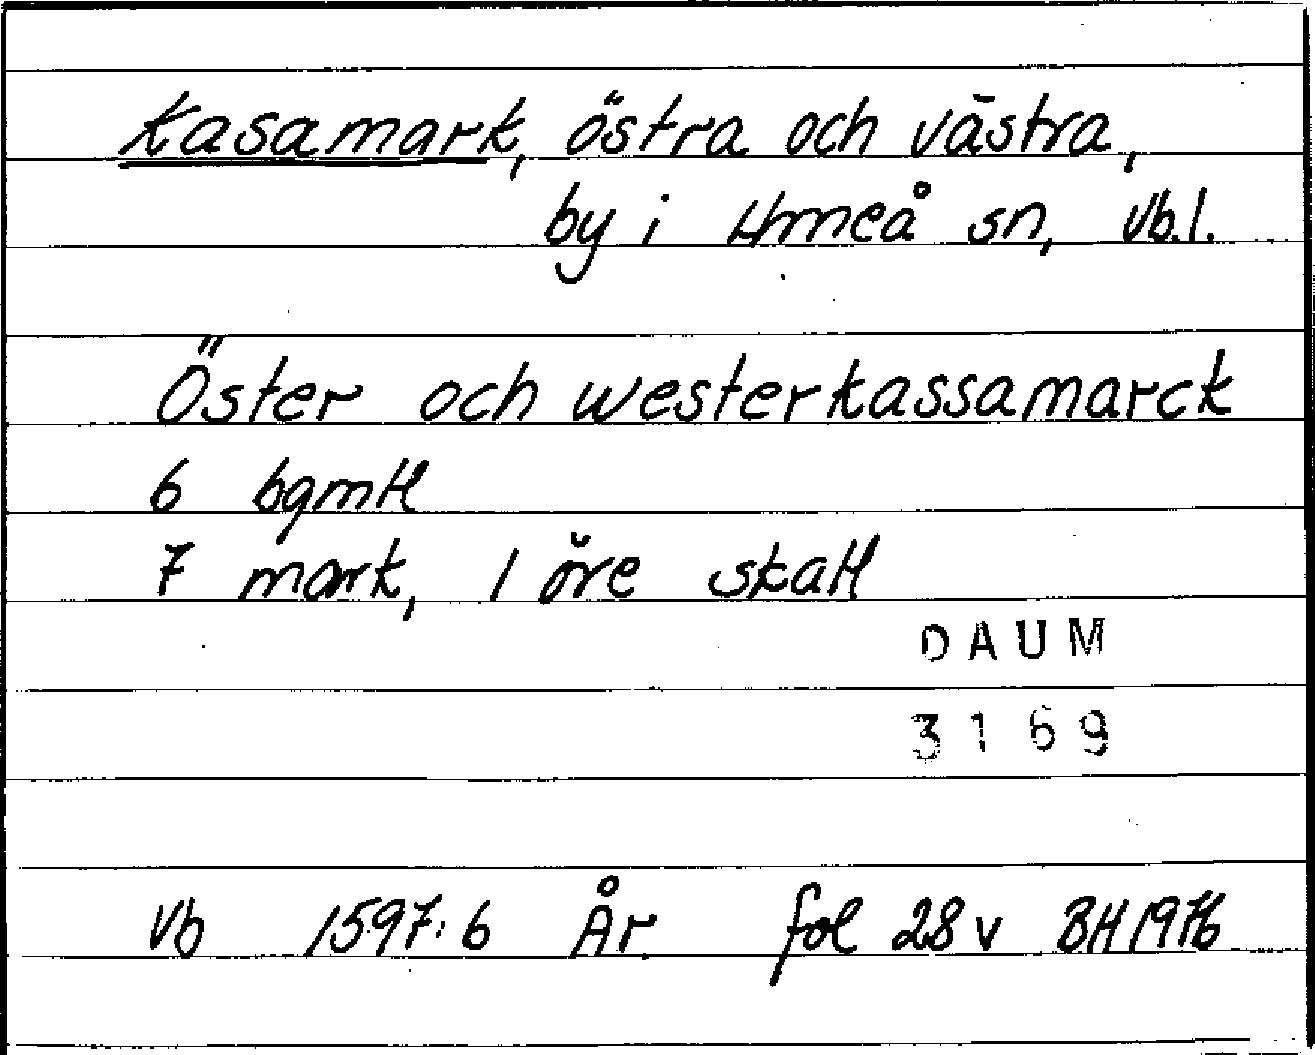 Kasamark, östra och västra,
by i Umeå sn, Vb.l.
Öster och westerkassamarck
6 bgmtl
7 mark, 1 öre skatt
DAUM
3169
Vb 1597:6 År. fol 28v BH 1976